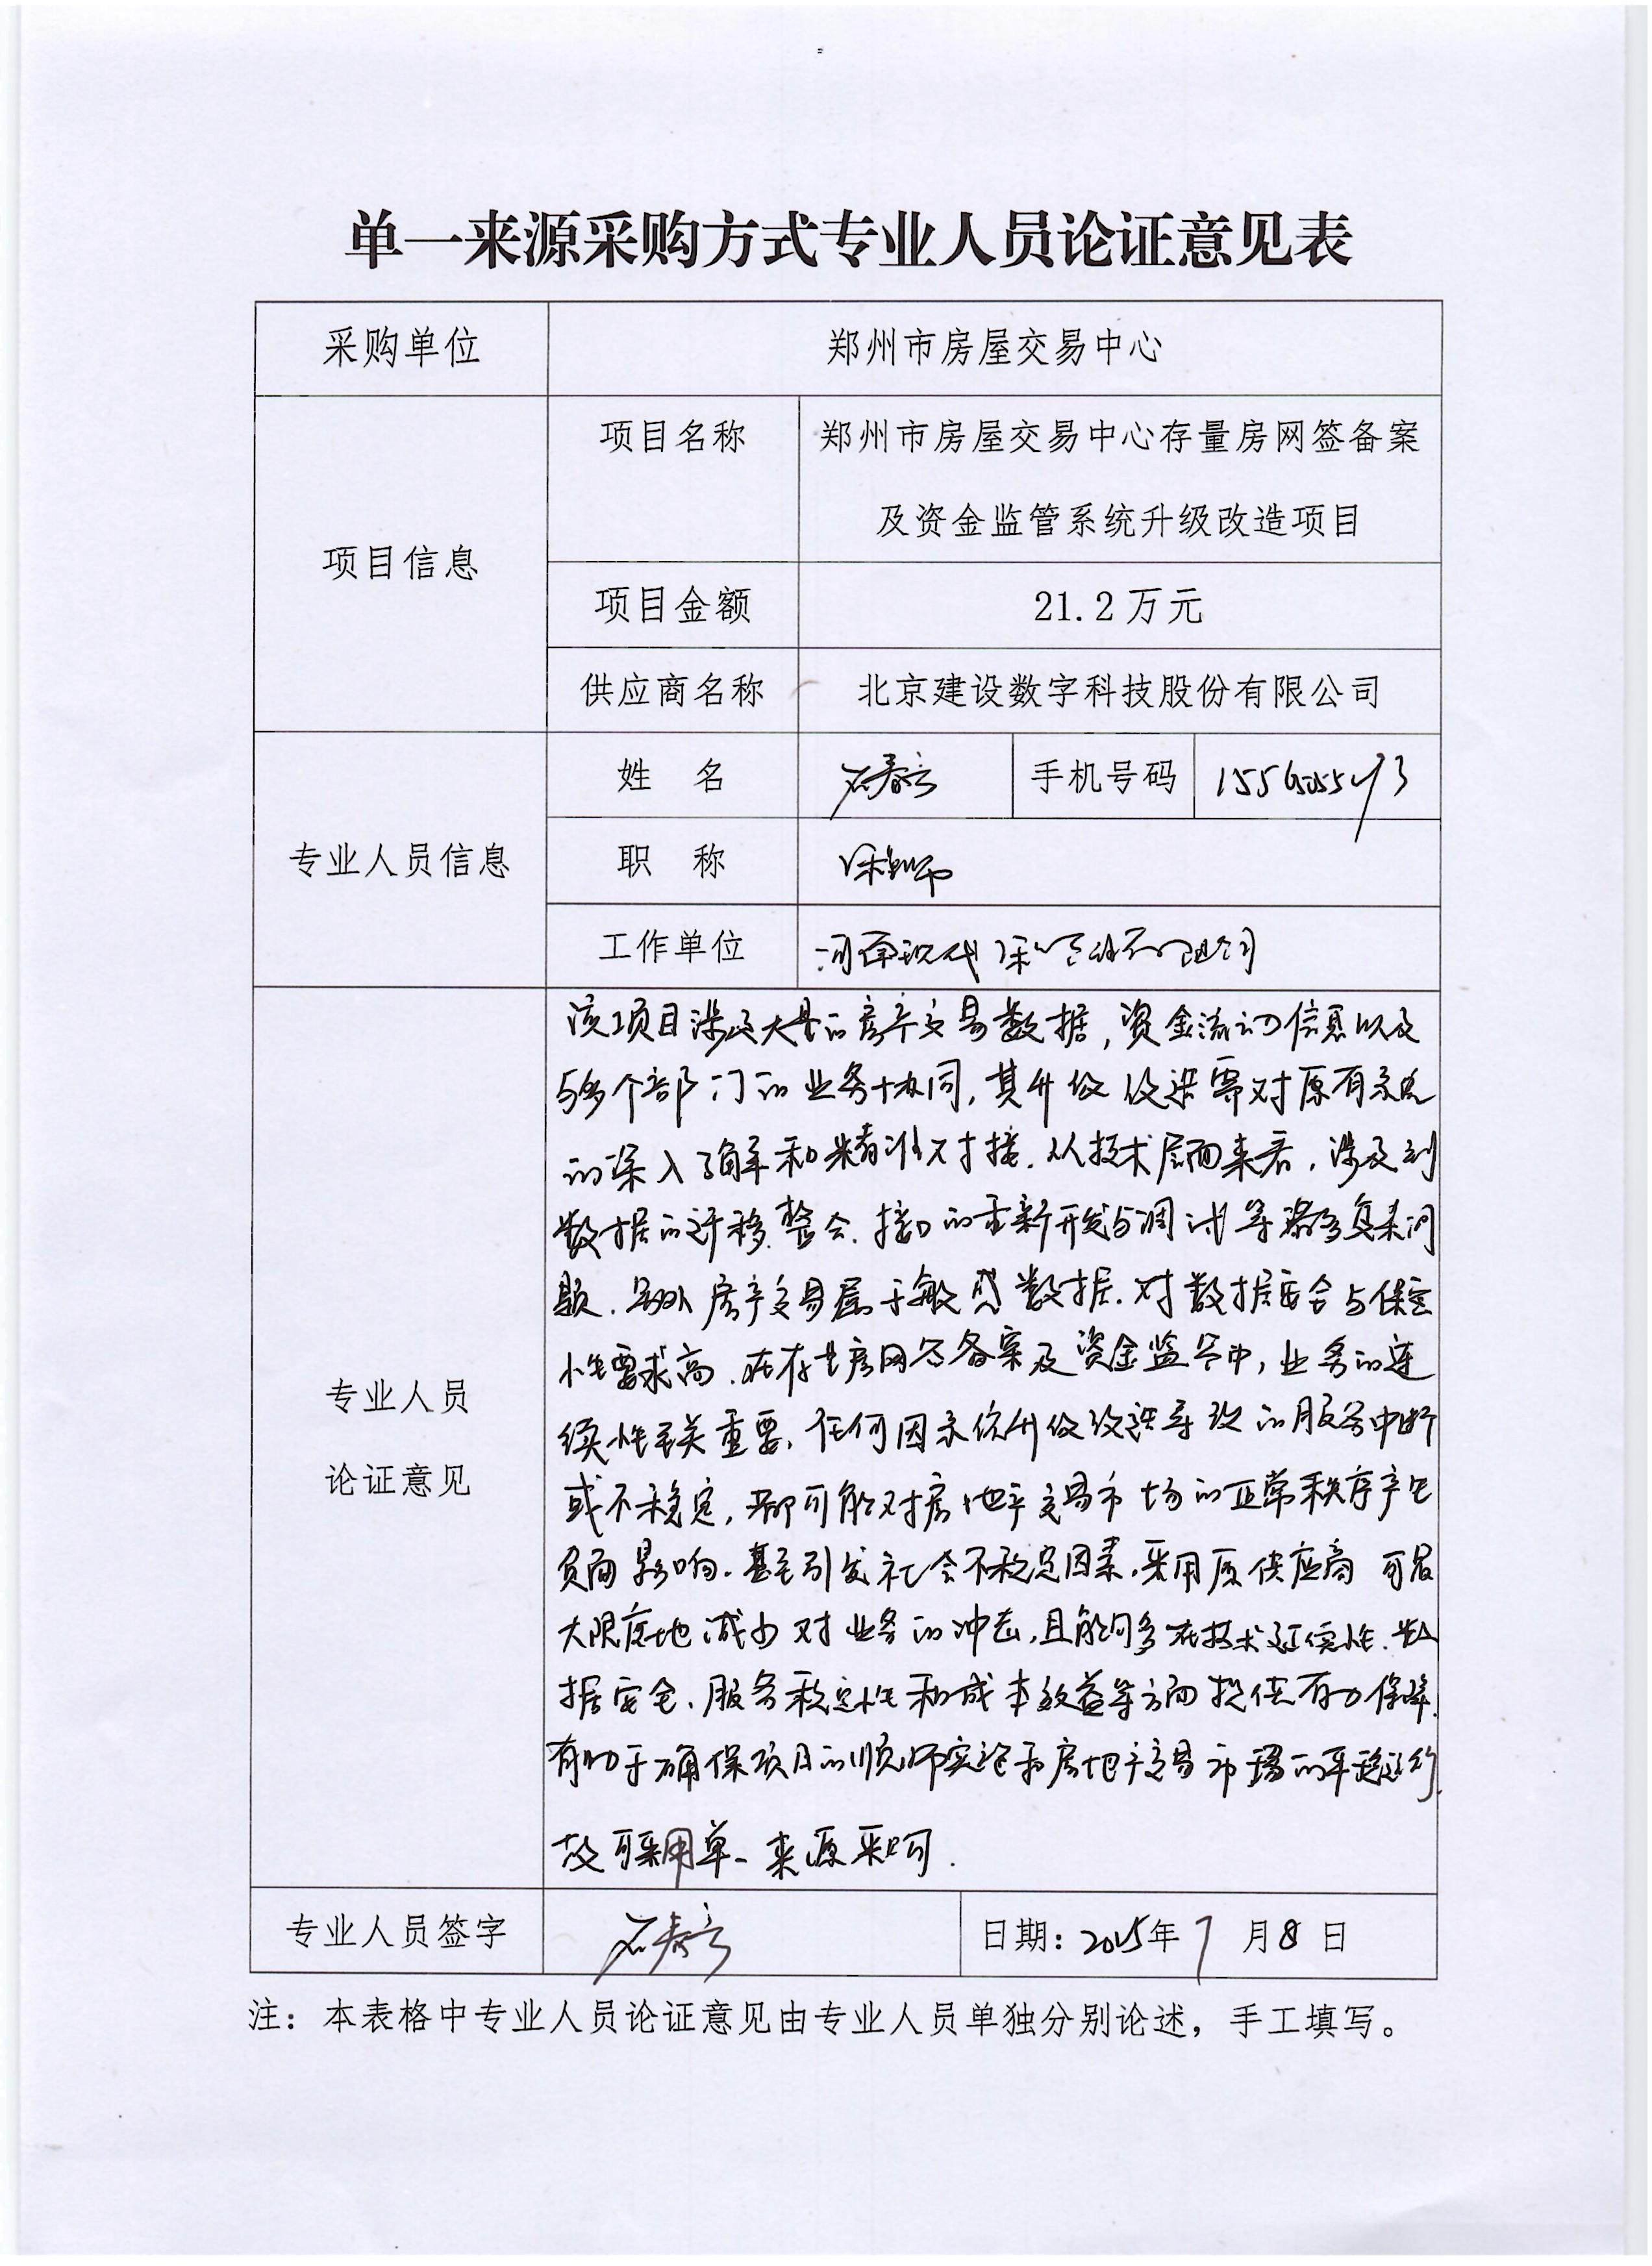 单一来源采购方式专业人员论证意见表
采购单位 郑州市房屋交易中心
项目信息
项目名称 郑州市房屋交易中心存量房网签备案
及资金监管系统升级改造项目
项目金额 21.2万元
供应商名称 北京建设数字科技股份有限公司
专业人员信息
姓 名 手机号码
职 称
工作单位 河南现代 有限公司
专业人员
论证意见
该项目涉及大量的房产交易数据,资金流动信息以及
与多个部门的业务协同,其升级改造需对原有系统
的深入了解和精准对接.从技术层面来看,涉及到
数据的迁移、整合、接口的重新开发与调试等诸多复杂问
题.另外房产交易属于敏感数据.对数据安全与保密
性要求高.在存量房网签备案及资金监管中,业务的连
续性至关重要,任何因系统升级改造导致的服务中断
或不稳定,都可能对房地产交易市场的正常秩序产生
负面影响.甚至引发社会不稳定因素.采用原供应商可最
大限度地减少对业务的冲击,且能够在技术延续性、数
据安全、服务稳定性和成本效益等方面提供有力保障.
有助于确保项目的顺利实施和房地产交易市场的平稳运行.
故可采用单一来源采购.
专业人员签字 日期:2025年7月8日
注:本表格中专业人员论证意见由专业人员单独分别论述,手工填写。